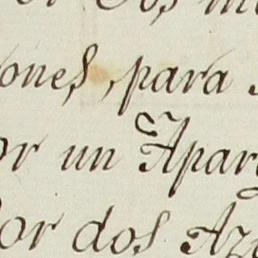 ones, para
or un Apar
or dos Az